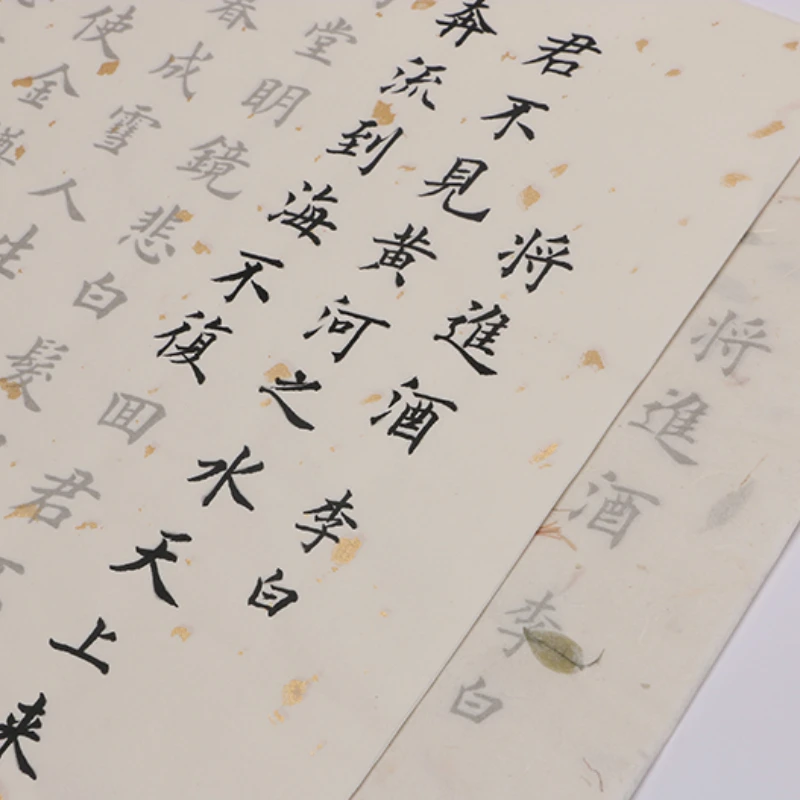 将進酒 李白
君不見黄河之水天上来
奔流到海不復回君
堂明鏡悲白髮
成雪人生
使金
将進酒 李白